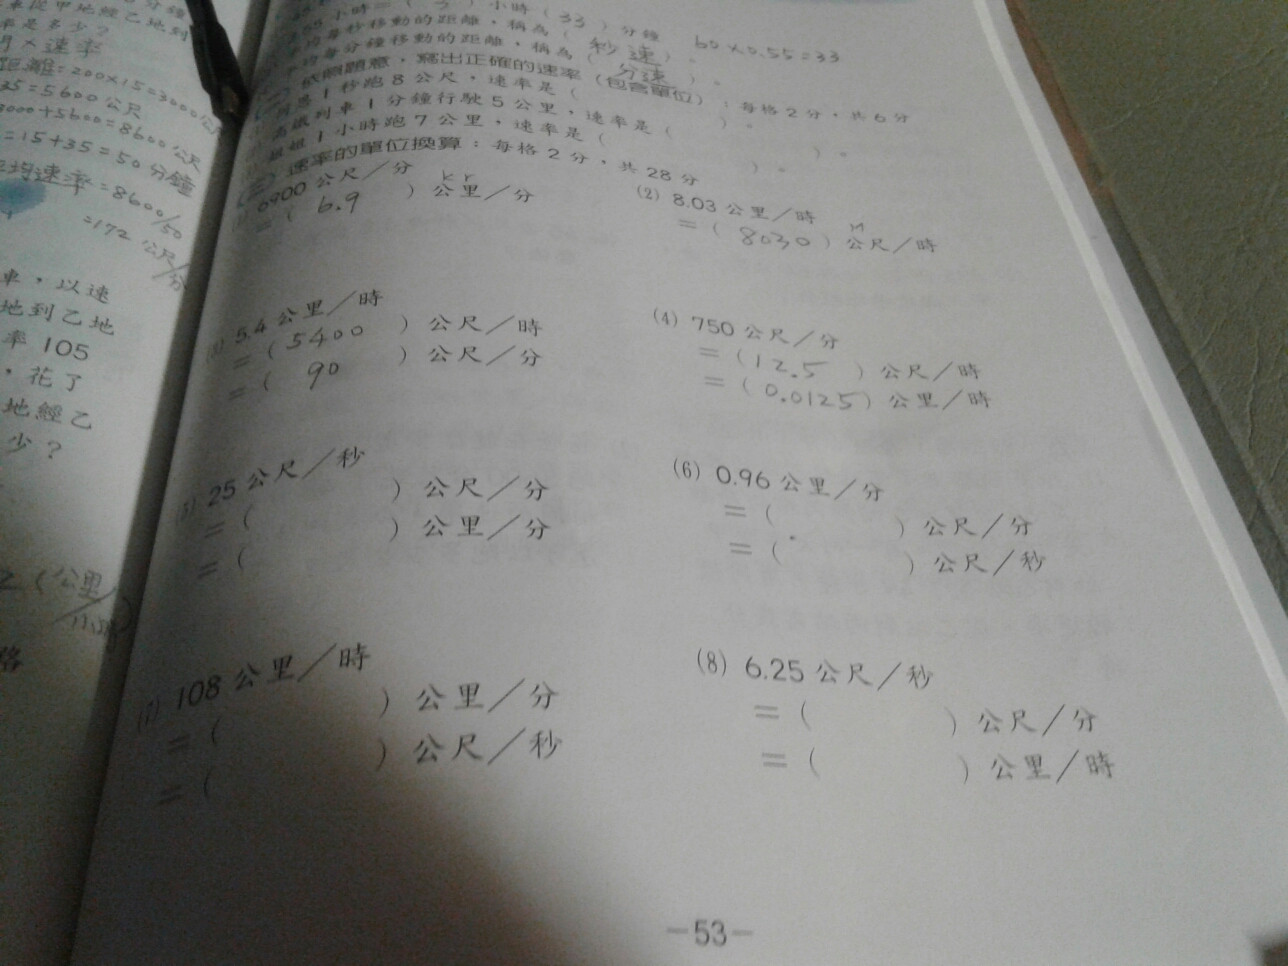 車從甲地經乙地到
率是多少?
距離=200×15=3000公尺
35=5600公尺
3000+5600=8600公尺
=15+35=50分鐘
平均速率=8600/50
=172 公尺/分
車,以速
地到乙地
率 105
,花了
地經乙
少?
(公里/小時)
小時(33)分鐘 60×0.55=33
移動的距離,稱為(秒速)。
每分鐘移動的距離,稱為(分速)。
依照題意,寫出正確的速率(包含單位):每格2分,共6分
1秒跑8公尺,速率是( )。
高鐵列車1分鐘行駛5公里,速率是( )。
姐姐1小時跑7公里,速率是( )。
(三) 速率的單位換算:每格2分,共28分
6900公尺/分
=(6.9)公里/分
(2) 8.03公里/時
=(8030)公尺/時
(3) 5.4公里/時
=(5400)公尺/時
=(90)公尺/分
(4) 750公尺/分
=(12.5)公尺/時
=(0.0125)公里/時
(5) 25公尺/秒
=( )公尺/分
=( )公里/分
(6) 0.96公里/分
=( )公尺/分
=( )公尺/秒
(7) 108公里/時
=( )公里/分
=( )公尺/秒
(8) 6.25公尺/秒
=( )公尺/分
=( )公里/時
－53－